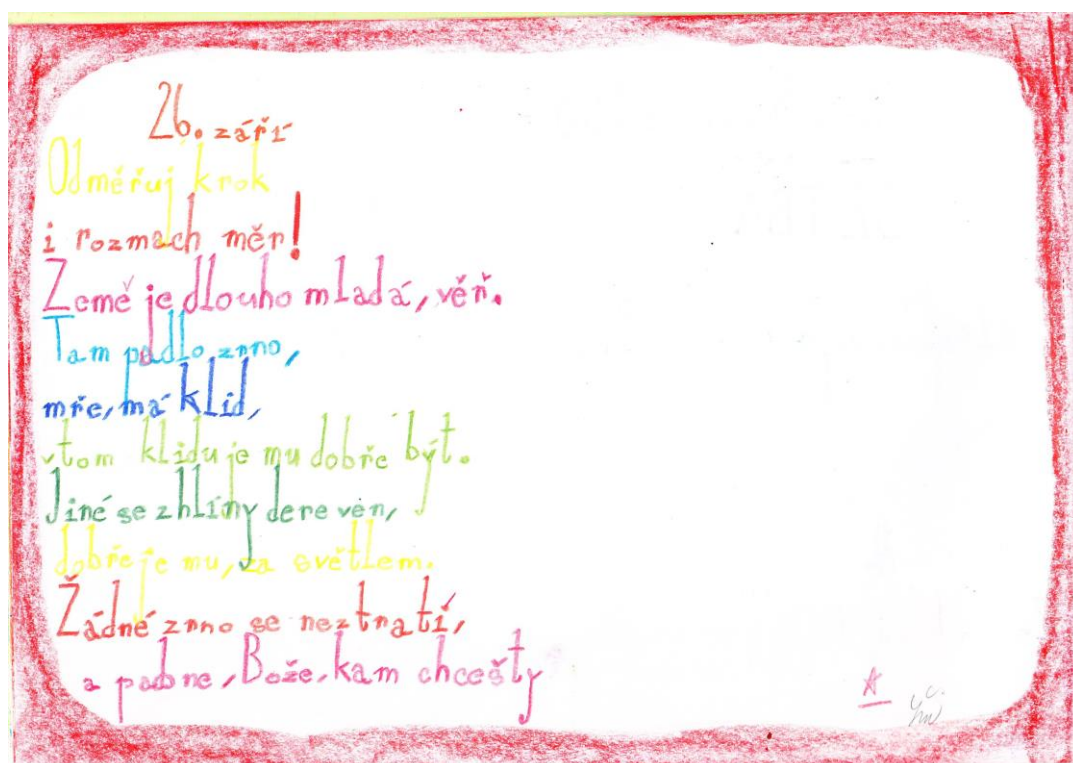 26. září
Odměřuj krok
i rozmach měř!
Země je dlouho mladá, věř.
Tam padlo zrno,
mře, má klid,
v tom klidu je mu dobře být.
Jiné se z hlíny dere ven,
dobře je mu, za světlem.
Žádné zrno se neztratí,
a padne, Bože, kam chceš ty